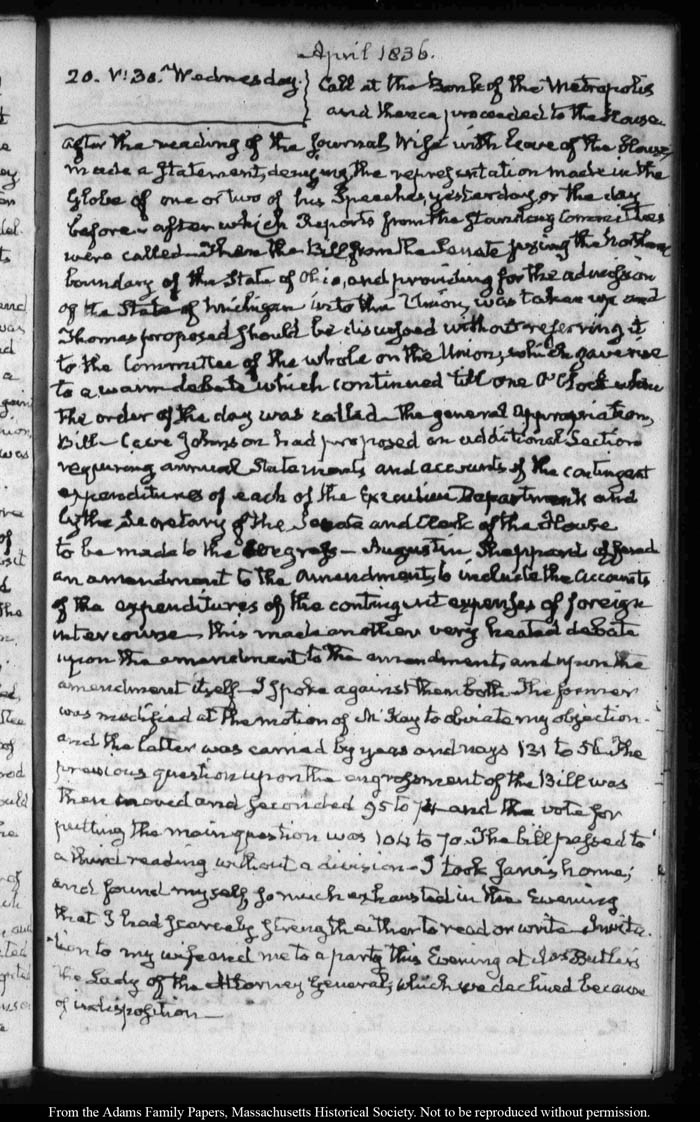 April 1836.
20. V: 30. Wednesday. } Call at the Bank of the Metropolis
and thence proceeded to the House.
after the reading of the Journal, Wise with leave of the House,
made a Statement, denying the representation made in the
Globe of one or two of his Speeches, yesterday, or the day
before — after which Reports from the Standing Committees
were called — Then the Bill from the Senate fixing the Northern
boundary of the State of Ohio, and providing for the admission
of the State of Michigan into the Union, was taken up and
Thomas proposed should be discussed without referring it
to the Committee of the whole on the Union, which gave rise
to a warm debate which continued till one O'Clock when
the order of the day was called — the general Appropriation,
Bill — Cave Johnson had proposed an additional Section
requiring annual Statements and accounts of the contingent
expenditures of each of the Executive Departments and
by the Secretary of the Senate and Clerk of the House
to be made to the Congress — Augustin Sheppard offered
an amendment to the amendment, to include the Accounts
of the expenditures of the contingent expenses of foreign
intercourse, this made another very heated debate
upon the amendment to the amendment, and upon the
amendment itself — I spoke against them both. The former
was modified at the motion of McKay to obviate my objection -
and the latter was carried by yeas and nays 131 to 56. The
previous question upon the engrossment of the Bill was
then moved and seconded 95 to 74 and the vote for
putting the main question was 104 to 70. The bill passed to
a third reading without a division — I took Jarvis home;
and found myself so much exhausted in the Evening
that I had scarcely strength either to read or write — Invita-
tion to my wife and me to a party this Evening at Butler's
the Lady of the Attorney General; which we declined because
of indisposition —
From the Adams Family Papers, Massachusetts Historical Society. Not to be reproduced without permission.